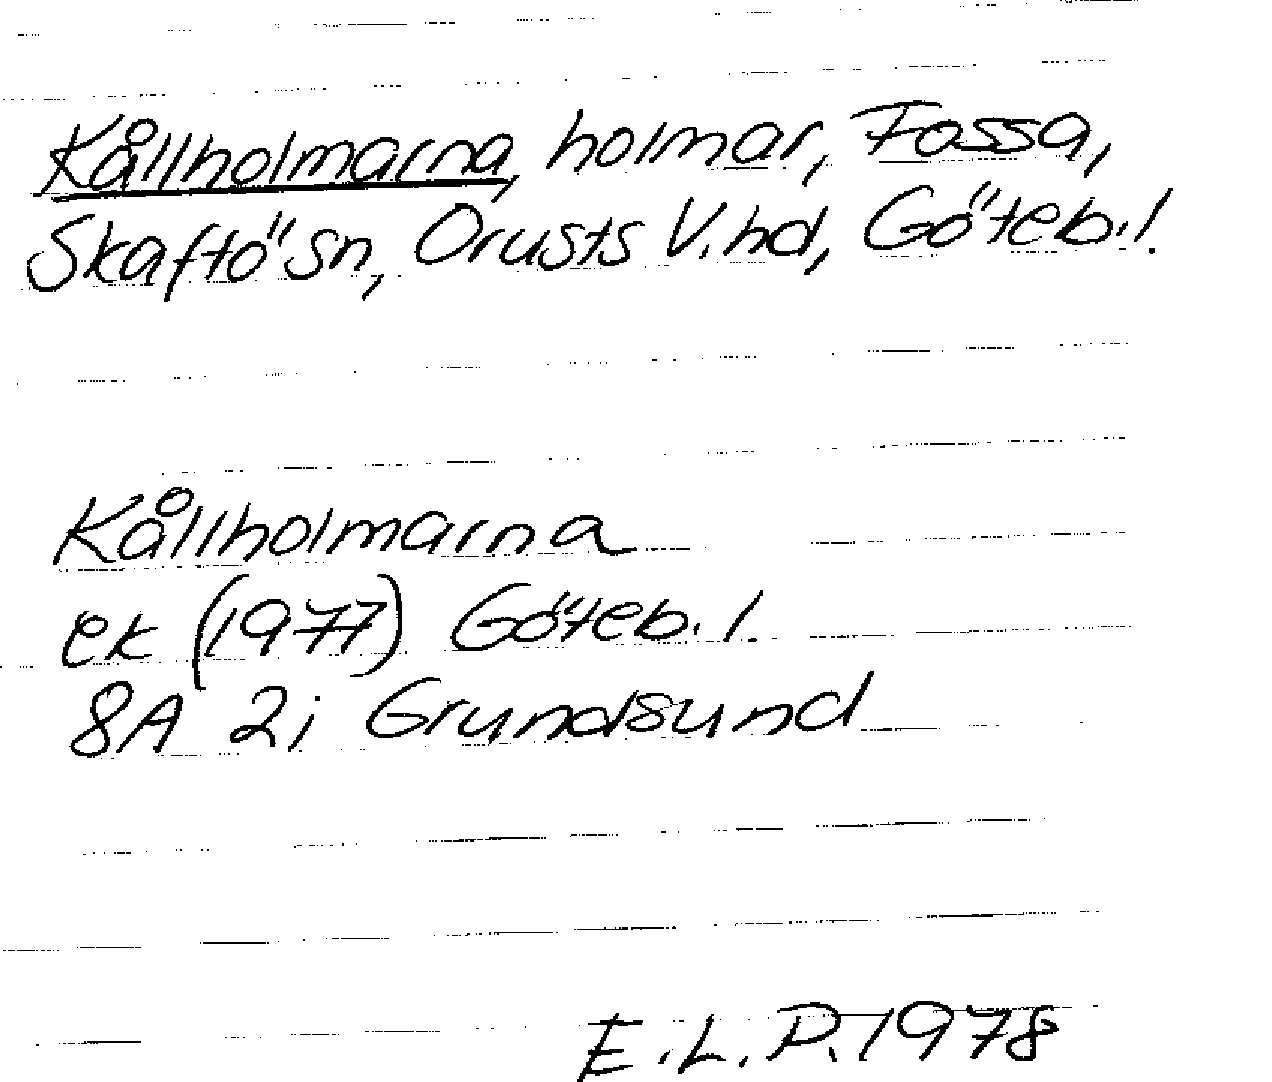 Kållholmarna, holmar, Fossa,
Skaftö sn, Orusts V. hd, Göteb. l.
Kållholmarna
ek (1977) Göteb. l.
8A 2i Grundsund
E.L.P. 1978